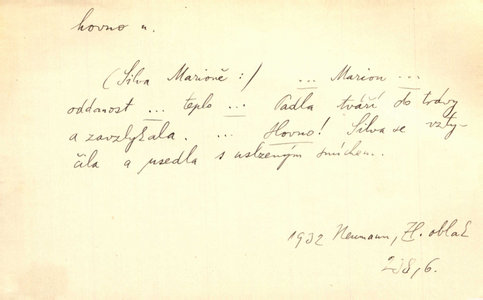 hovno n.
(Silva Marioně :/) ... Marion ...
oddanost ... teplo ... Padla tváří do trávy
a zavzlykala. ... Hovno! Silva se vzty-
čila a usedla s uslzeným smíchem..
1932 Neumann, Zl. oblak
238, 6.